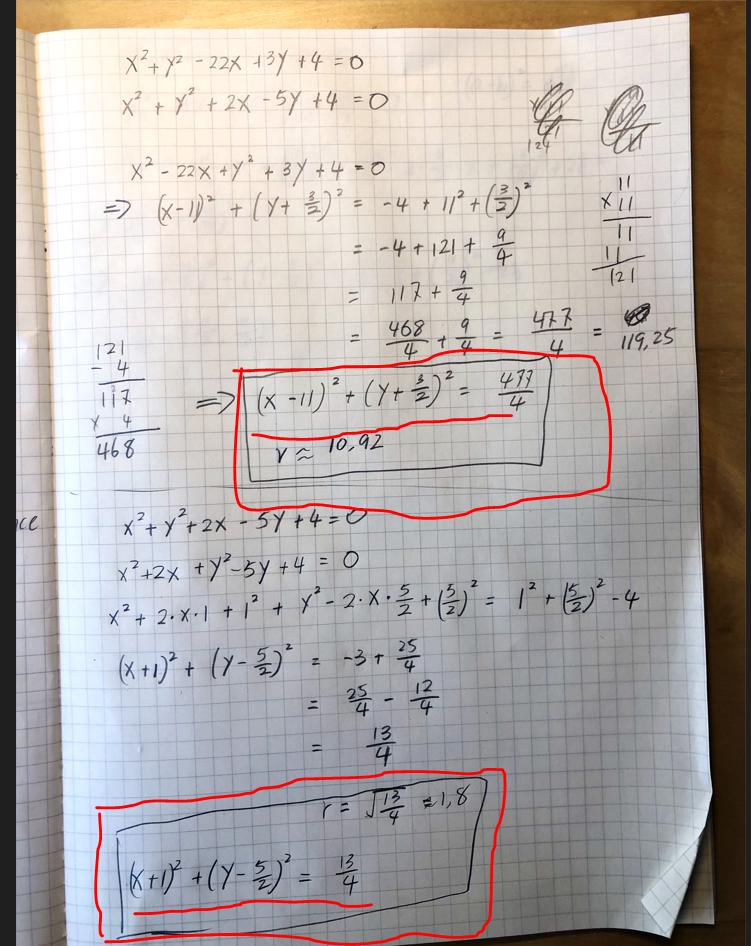 x² + y² - 22x + 3y + 4 = 0
x² + y² + 2x - 5y + 4 = 0
124
x² - 22x + y² + 3y + 4 = 0
⇒ (x-11)² + (y + 3/2)² = -4 + 11² + (3/2)²
= -4 + 121 + 9/4
= 117 + 9/4
= 468/4 + 9/4 = 477/4 = 119,25
11
x 11
11
11
121
121
- 4
117
x 4
468
⇒ (x - 11)² + (y + 3/2)² = 477/4
r ≈ 10,92
x² + y² + 2x - 5y + 4 = 0
ce
x² + 2x + y² - 5y + 4 = 0
x² + 2·x·1 + 1² + y² - 2·x·5/2 + (5/2)² = 1² + (5/2)² - 4
(x+1)² + (y - 5/2)² = -3 + 25/4
= 25/4 - 12/4
= 13/4
r = √13/4 ≈ 1,8
(x+1)² + (y - 5/2)² = 13/4